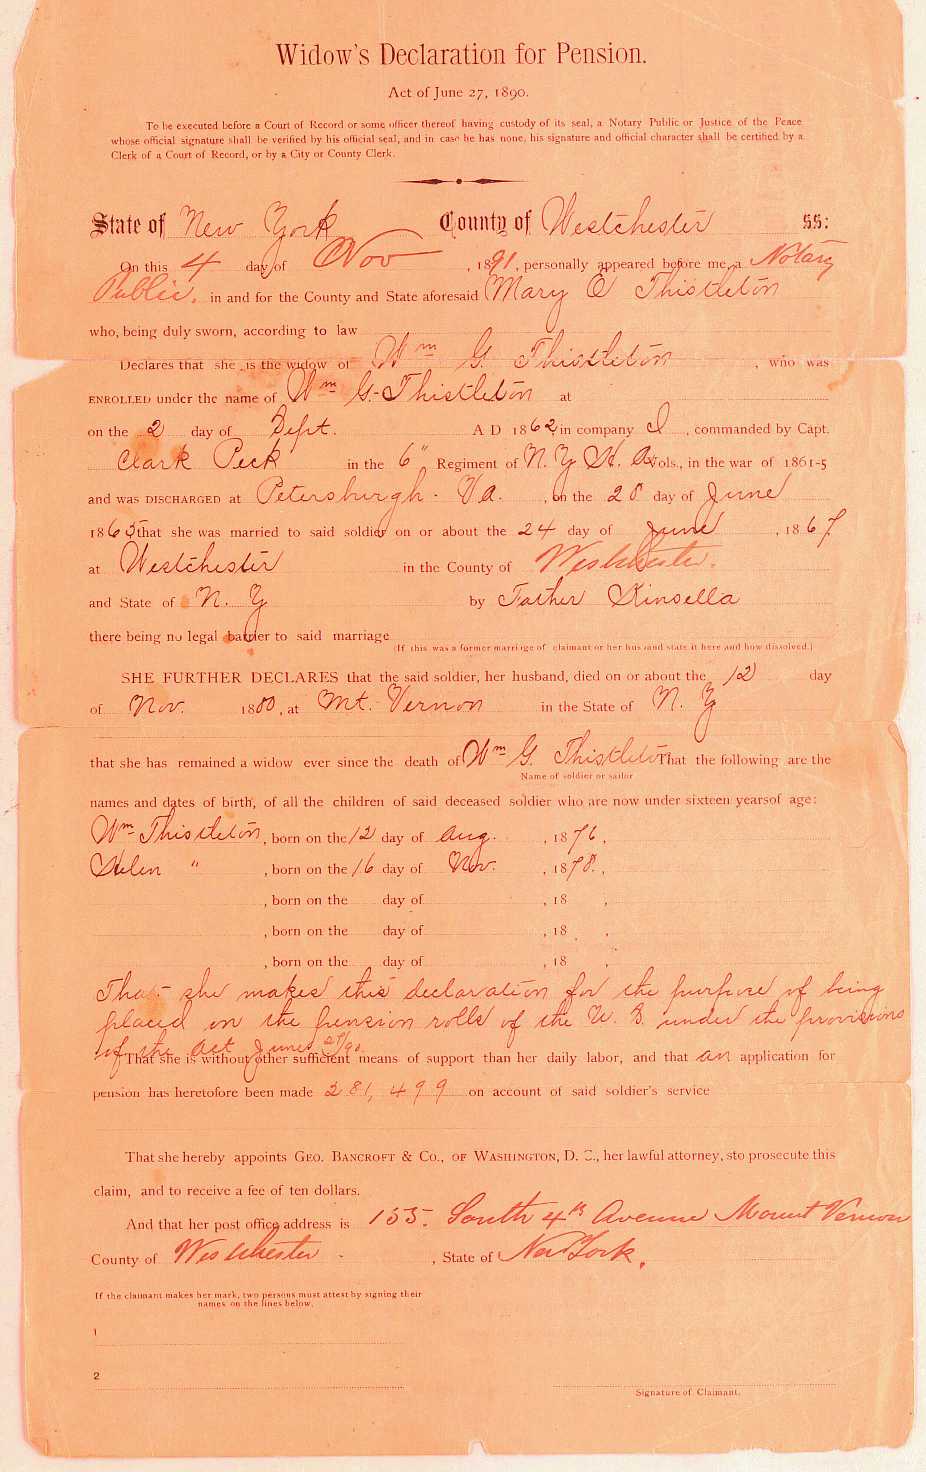 Widow's Declaration for Pension.
Act of June 27, 1890.
To be executed before a Court of Record or some officer thereof having custody of its seal, a Notary Public or Justice of the Peace
whose official signature shall be verified by his official seal, and in case he has none, his signature and official character shall be certified by a
Clerk of a Court of Record, or by a City or County Clerk.
State of New York County of Westchester ss:
On this 4 day of Nov , 1891, personally appeared before me, a Notary
Public, in and for the County and State aforesaid Mary E Thistleton
who, being duly sworn, according to law
Declares that she is the widow of Wm G. Thistleton , who was
ENROLLED under the name of Wm G. Thistleton at
on the 2 day of Sept. A D 1862, in company I , commanded by Capt.
Clark Peck in the 6" Regiment of N. Y H. A Vols., in the war of 1861-5
and was DISCHARGED at Petersburgh. Va. , on the 28 day of June
1865 that she was married to said soldier on or about the 24 day of June , 1867
at Westchester in the County of Westchester.
and State of N. Y by Father Kinsella
there being no legal barrier to said marriage
(If this was a former marriage of claimant or her husband state it here and how dissolved.)
SHE FURTHER DECLARES that the said soldier, her husband, died on or about the 12 day
of Nov. 1880, at Mt. Vernon in the State of N. Y
that she has remained a widow ever since the death of Wm G. Thistleton That the following are the
Name of soldier or sailor
names and dates of birth, of all the children of said deceased soldier who are now under sixteen yearsof age:
Wm Thistleton, born on the 12 day of Aug. , 1876,
Helen " , born on the 16 day of Nov. , 1878.,
, born on the day of , 18 ,
, born on the day of , 18 ,
, born on the day of , 18 ,
That she makes this declaration for the purpose of being
placed on the pension rolls of the U. S. under the provisions
of the Act June 27/90
That she is without other sufficient means of support than her daily labor, and that an application for
pension has heretofore been made 281,499 on account of said soldier's service
That she hereby appoints GEO. BANCROFT & CO., OF WASHINGTON, D. C., her lawful attorney, sto prosecute this
claim, and to receive a fee of ten dollars.
And that her post office address is 155. South 4th Avenue Mount Vernon
County of Westchester , State of New York.
If the claimant makes her mark, two persons must attest by signing their
names on the lines below.
1
2
Signature of Claimant.